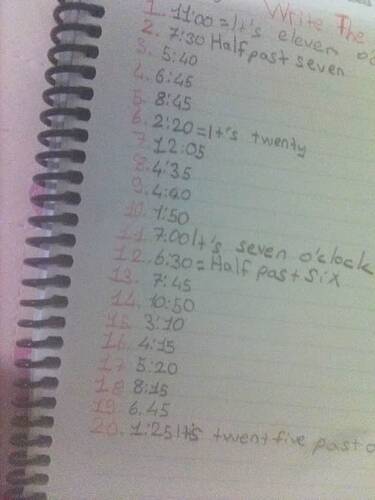 Write The
1. 11:00=It's eleven o'c
2. 7:30 Half past seven
3. 5:40
4. 6:45
5. 8:45
6. 2:20=It's twenty
7. 12:05
8. 4:35
9. 4:40
10. 1:50
11. 7:00 It's seven o'clock
12. 6:30=Half past six
13. 7:45
14. 10:50
15. 3:10
16. 4:15
17. 5:20
18. 8:15
19. 6.45
20. 1:25 It's twent five past o